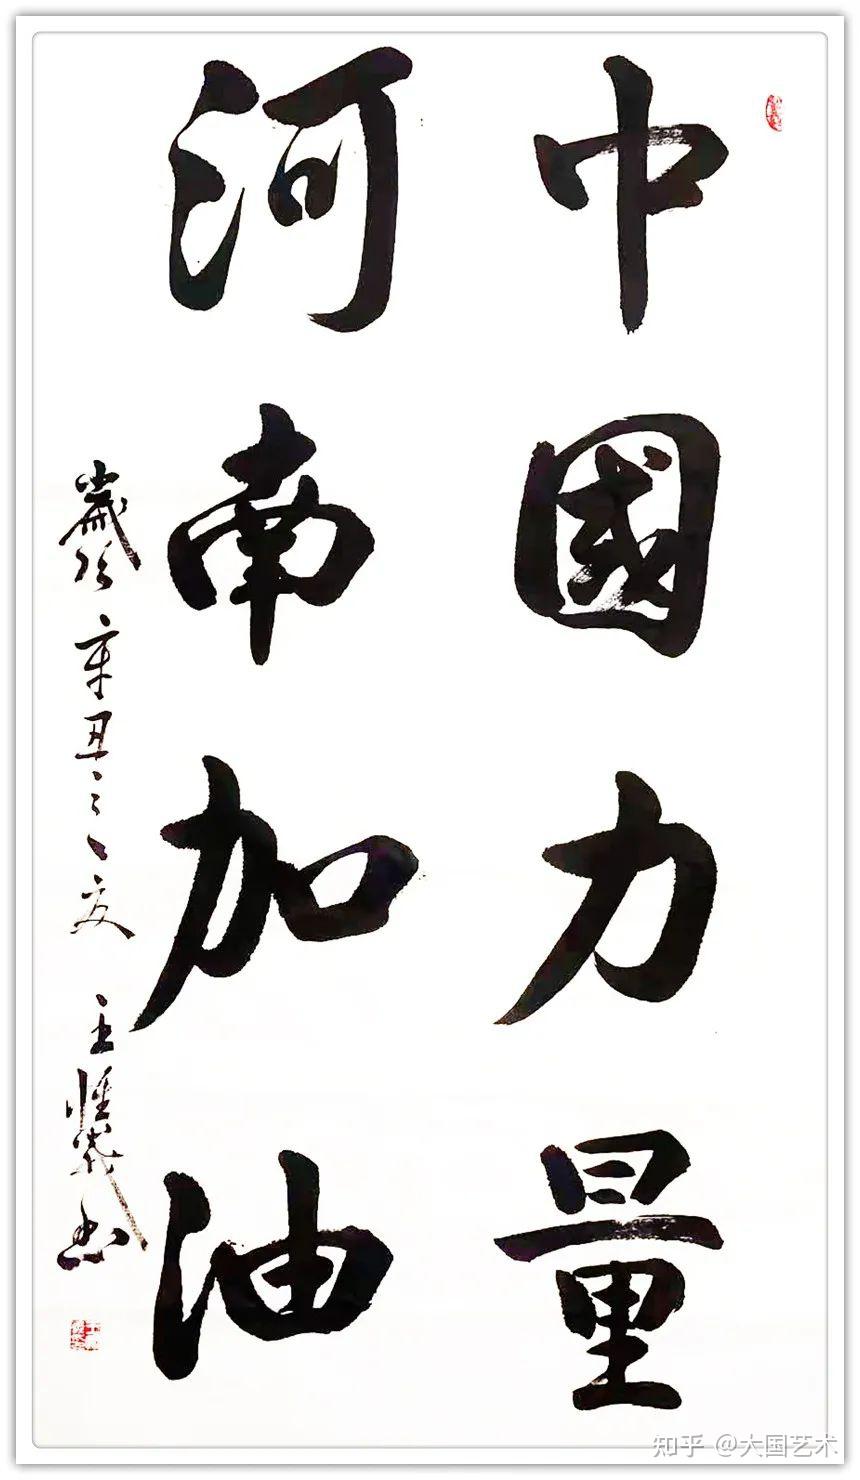 中國力量
河南加油
歲次辛丑之夏 王惟義書
知乎 @大国艺术